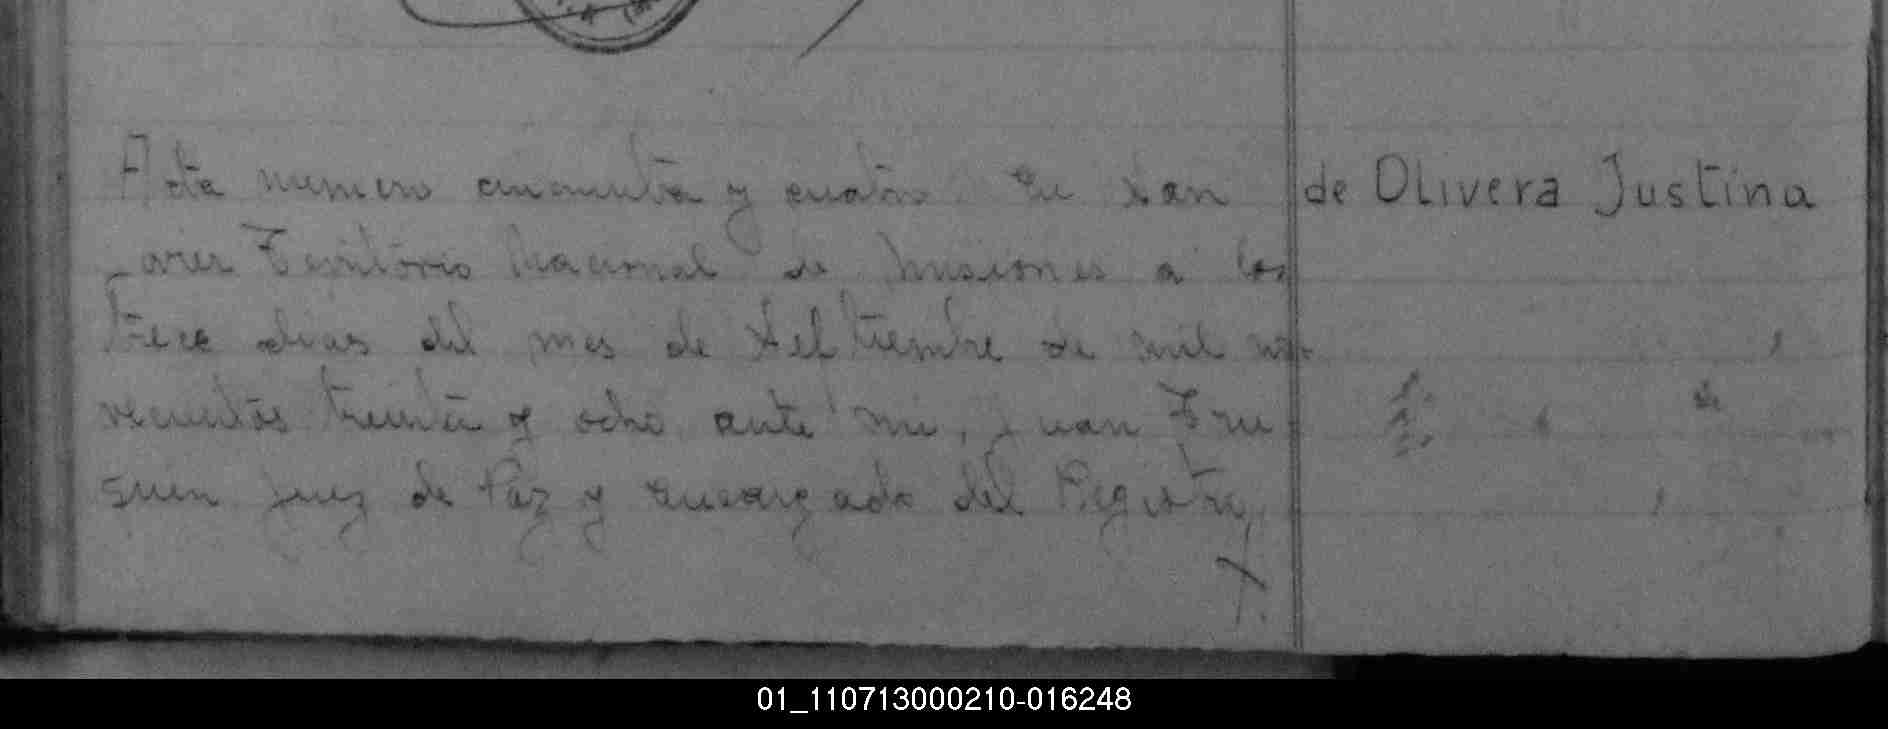 Acta numero cincuenta y cuatro. En San
avier Territorio Nacional de Misiones a los
trece dias del mes de Septiembre de mil no
vecientos treinta y ocho, ante mi, Juan
Juez de Paz y encargado del Registro,
de Olivera Justina
01_110713000210-016248